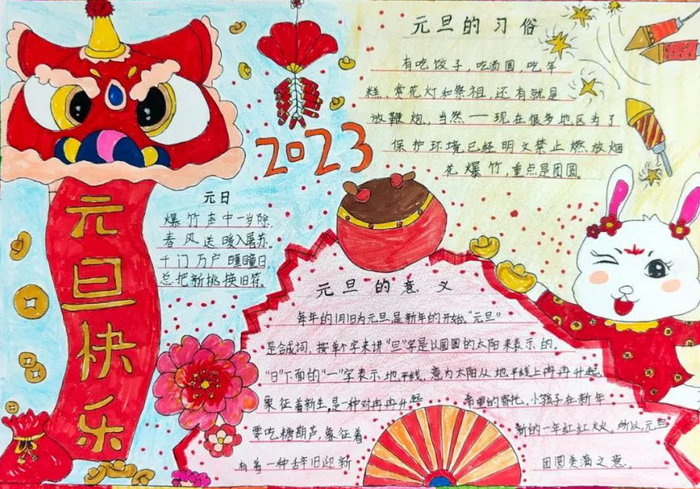 元旦快乐
2023
元旦的习俗
有吃饺子，吃汤圆，吃年
糕，赏花灯和祭祖，还有就是
放鞭炮，当然一一现在很多地区为了
保护环境已经明文禁止燃放烟
花爆竹，重点是团圆
元日
爆竹声中一岁除，
春风送暖入屠苏．
千门万户曈曈日，
总把新桃换旧符．
元旦的意义
每年的1月1日为元旦是新年的开始，"元旦"
是合成词，按单个字来讲"旦"字是以圆圆的太阳来表示的．
"日"下面的"一"字表示地平线，意为太阳从地平线上冉冉升起
象征着新生，是一种对冉冉升起 希望的寄托，小孩子在新年
要吃糖葫芦，象征着 新的一年红红火火，所以，元旦
有着一种辞旧迎新 团圆美满之意．